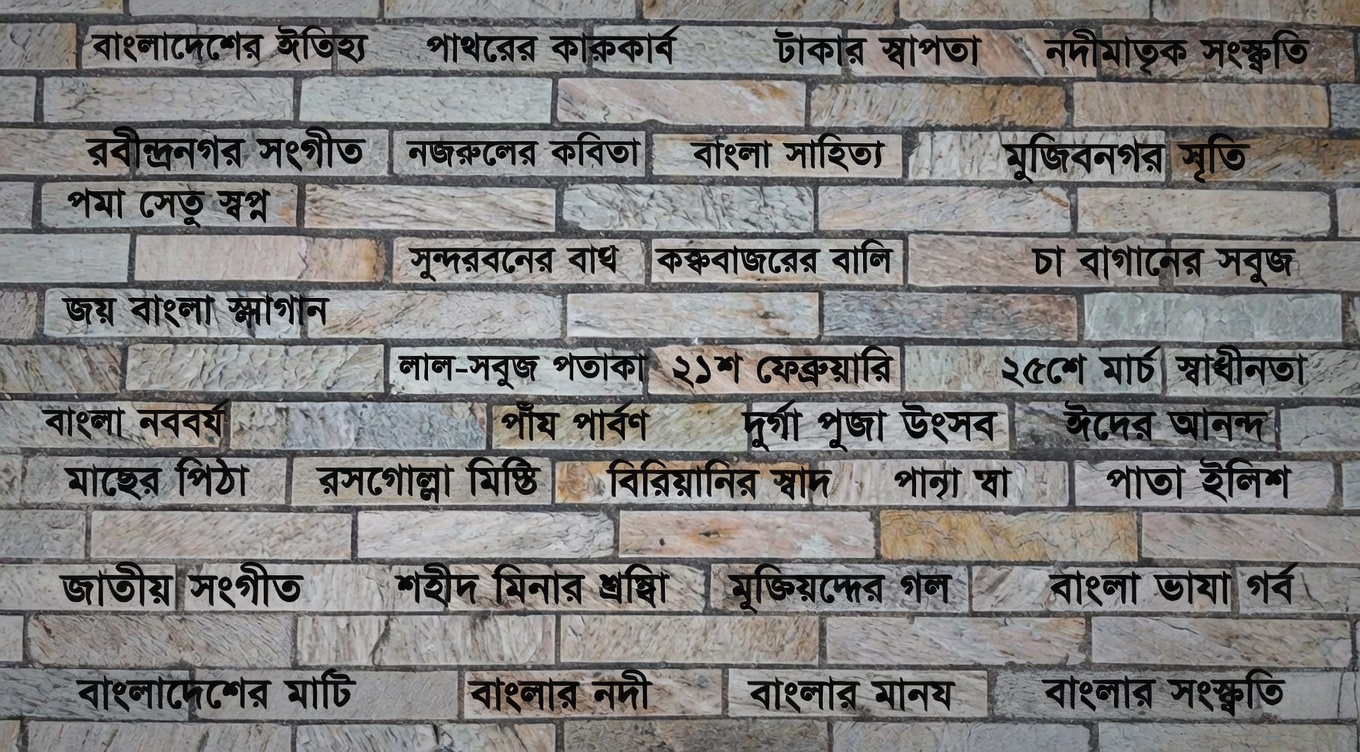 বাংলাদেশের ঈতিহ্য পাথরের কারুকার্ব টাকার স্বাপতা নদীমাতৃক সংস্কৃতি
রবীন্দ্রনগর সংগীত নজরুলের কবিতা বাংলা সাহিত্য মুজিবনগর সৃতি
পমা সেতু স্বপ্ন
সুন্দরবনের বাঘ কক্সবাজরের বালি চা বাগানের সবুজ
জয় বাংলা স্লাগান
লাল-সবুজ পতাকা ২১শ ফেব্রুয়ারি ২৫শে মার্চ স্বাধীনতা
বাংলা নববর্য পাঁয পার্বণ দুর্গা পুজা উৎসব ঈদের আনন্দ
মাছের পিঠা রসগোল্লা মিষ্টি বিরিয়ানির স্বাদ পান্া স্বা পাতা ইলিশ
জাতীয় সংগীত শহীদ মিনার গল বাংলা ভাযা গর্ব
বাংলাদেশের মাটি বাংলার নদী বাংলার মানয বাংলার সংস্কৃতি